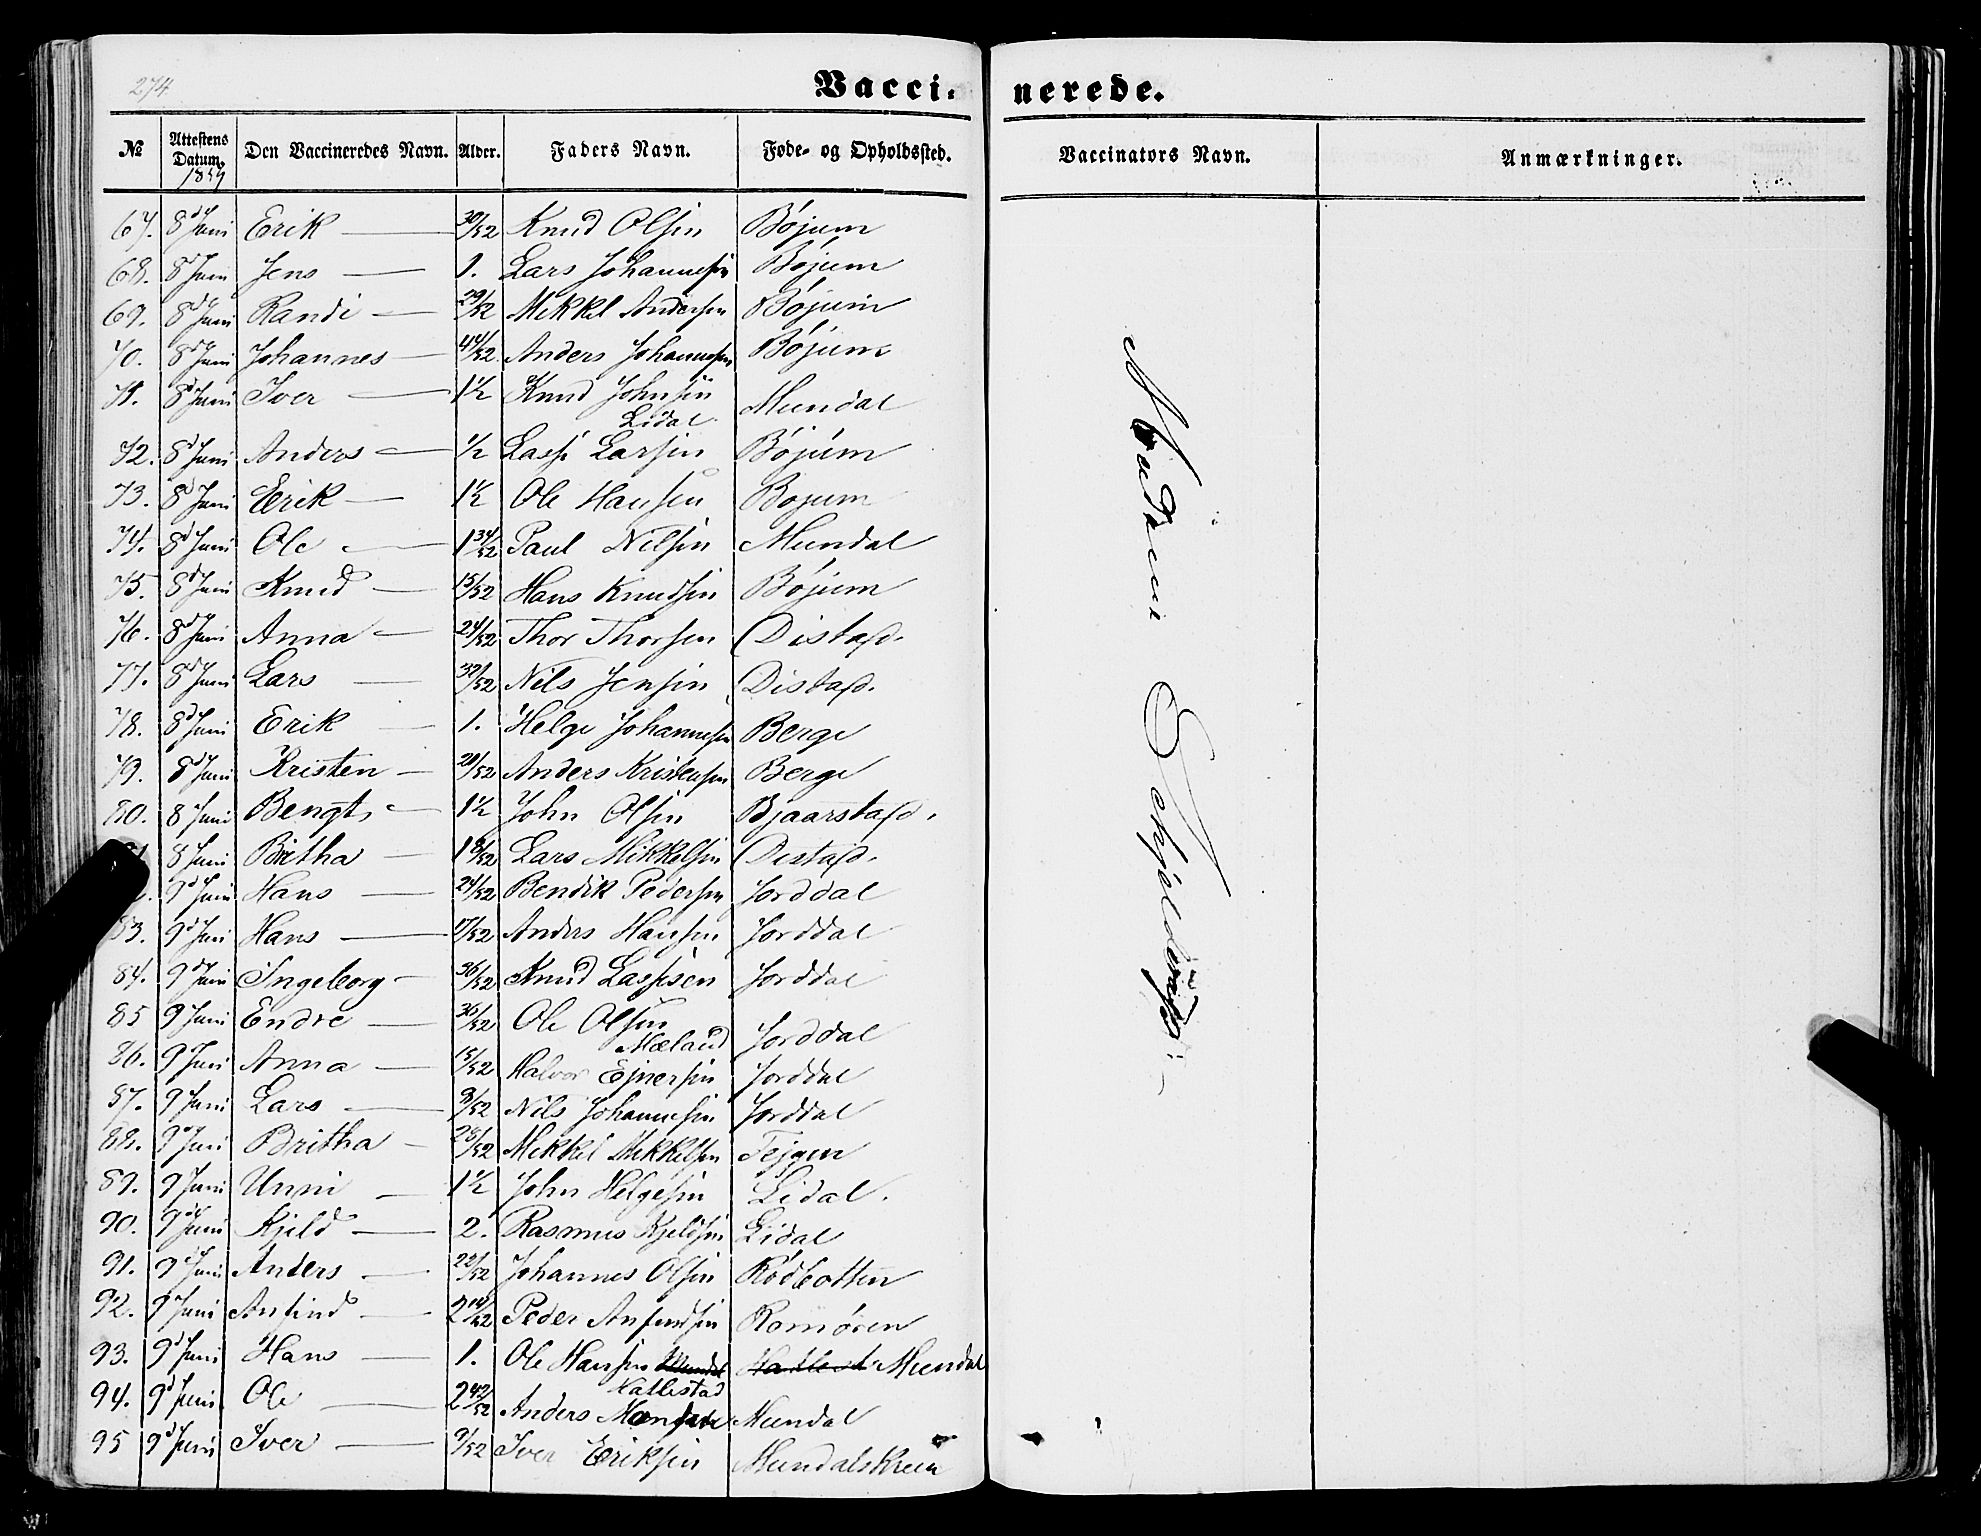 274
Vacci- nerede.
№ Attestens Datum. 1859 Den Vaccineredes Navn. Alder. Faders Navn. Føde- og Opholdssted. Vaccinators Navn. Anmærkninger.
67. 8d Juni Erik 30/52 Knud Olsen Bøjum
68. 8d Juni Jens 1. Lars Johannesen Bøjum
69. 8de Juni Randi 29/52 Mikkel Andersen Bøjum
70. 8de Juni Johannes 44/52 Anders Johannesen Bøjum
71. 8d Juni Iver 1½ Knud Johnsen Lidal Mundal
72. 8d Juni Anders ½ Lasse Larsen Bøjum
73. 8d Juni Erik 1½ Ole Hansen Bøjum
74. 8d Juni Ole 1 34/52 Paul Nilsen Mundal
75. 8d Juni Knud 15/52 Hans Knudsen Bøjum
76. 8d Juni Anna 24/52 Thor Thorsen Distad.
77. 8d Juni Lars 32/52 Nils Jensen Distad.
78. 8d Juni Erik 1. Helge Johannesen Berge
79. 8d Juni Kristen 20/52 Anders Kristensen Berge
80. 8 Juni Bengt 1½ John Olsen Bjaarstad.
8 Juni Britha 1 8/52 Lars Mikkelsen Distad.
9d Juni Hans 24/52 Bendik Pedersen Jorddal
83. 9d Juni Hans 17/52 Anders Hansen Jorddal
84. 9d Juni Ingeborg 36/52 Knud Lassesen Jorddal
85 9 Juni Endre 36/52 Ole Olsen Mæland Jorddal
86. 9 Juni Anna 15/52 Halvor Ejnersen Jorddal
87. 9 Juni Lars 9/52 Nils Johannesen Jorddal
88. 9 Juni Britha 28/52 Mikkel Mikkelsen Tejgen
89. 9 Juni Unni 1½ John Helgesen Lidal.
90. 9d Juni Kjeld 2. Rasmus Kjeldsen Lidal
91. 9d Juni Anders 22/52 Johannes Olsen Rødbotten
92. 9 Juni Anfind 2 Peder Anfindsen Romøren
93. 9d Juni Hans 1. Ole Hansen Mundal Hatlestad Mundal
94. 9d Juni Ole 2 42/52 Anders Hatlestad Mundal
95 9d Juni Iver 9/52 Iver Eriksen Mundalskreen
Madame